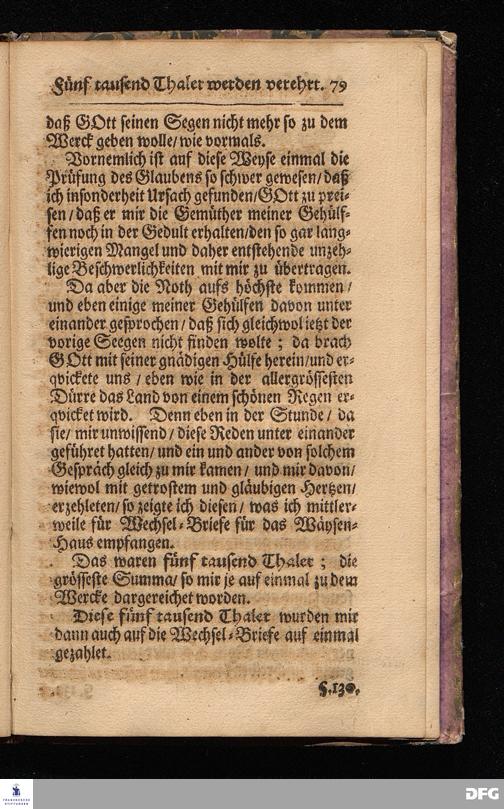 Fünf tausend Thaler werden verehrt. 79
daß GOtt seinen Segen nicht mehr so zu dem
Werck geben wolle/ wie vormals.
Vornemlich ist auf diese Weyse einmal die
Prüfung des Glaubens so schwer gewesen/ daß
ich insonderheit Ursach gefunden/GOtt zu prei-
sen / daß er mir die Gemüther meiner Gehülf-
fen noch in der Gedult erhalten/den so gar lang-
wierigen Mangel und daher entstehende unzeh-
lige Beschwerlichkeiten mit mir zu übertragen.
Da aber die Noth aufs höchste kommen /
und eben einige meiner Gehülfen davon unter
einander gesprochen / daß sich gleichwol ietzt der
vorige Seegen nicht finden wolte ; da brach
GOtt mit seiner gnädigen Hülfe herein/und er-
qvickete uns / eben wie in der allergrössesten
Dürre das Land von einem schönen Regen er-
qvicket wird. Denn eben in der Stunde / da
sie/ mir unwissend / diese Reden unter einander
geführet hatten/ und ein und ander von solchem
Gespräch gleich zu mir kamen / und mir davon/
wiewol mit getrostem und gläubigen Hertzen/
erzehleten/ so zeigte ich diesen / was ich mittler-
weile für Wechsel-Briefe für das Wäysen-
Haus empfangen.
Das waren fünf tausend Thaler ; die
grösseste Summa/ so mir je auf einmal zu dem
Wercke dargereichet worden.
Diese fünf tausend Thaler wurden mir
dann auch auf die Wechsel-Briefe auf einmal
gezahlet.
§.130.
FRANCKESCHE
STIFTUNGEN
DFG